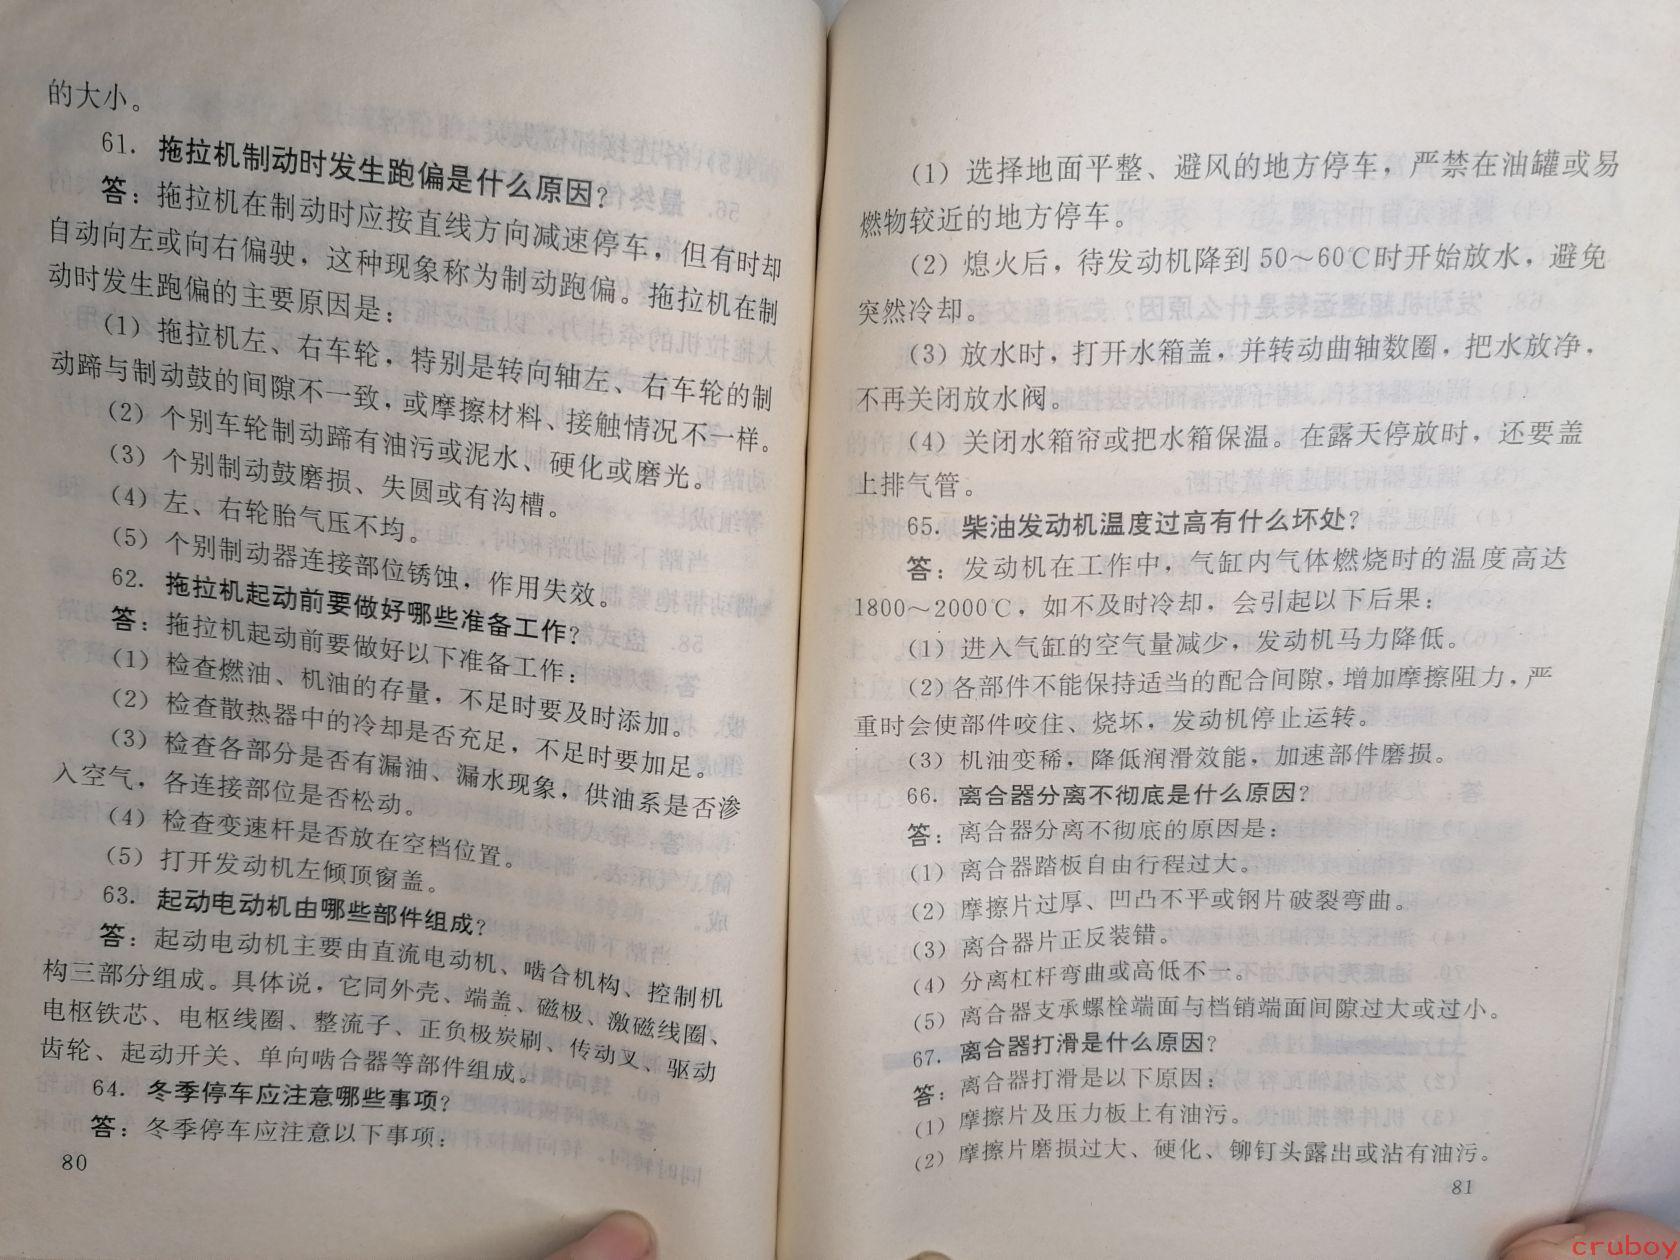 的大小。
61. 拖拉机制动时发生跑偏是什么原因?
答：拖拉机在制动时应按直线方向减速停车，但有时却
自动向左或向右偏驶，这种现象称为制动跑偏。拖拉机在制
动时发生跑偏的主要原因是：
(1) 拖拉机左、右车轮，特别是转向轴左、右车轮的制
动蹄与制动鼓的间隙不一致，或摩擦材料、接触情况不一样。
(2) 个别车轮制动蹄有油污或泥水、硬化或磨光。
(3) 个别制动鼓磨损、失圆或有沟槽。
(4) 左、右轮胎气压不均。
(5) 个别制动器连接部位锈蚀，作用失效。
62. 拖拉机起动前要做好哪些准备工作?
答：拖拉机起动前要做好以下准备工作：
(1) 检查燃油、机油的存量，不足时要及时添加。
(2) 检查散热器中的冷却是否充足，不足时要加足。
(3) 检查各部分是否有漏油、漏水现象，供油系是否渗
入空气，各连接部位是否松动。
(4) 检查变速杆是否放在空档位置。
(5) 打开发动机左倾顶窗盖。
63. 起动电动机由哪些部件组成?
答：起动电动机主要由直流电动机、啮合机构、控制机
构三部分组成。具体说，它同外壳、端盖、磁极、激磁线圈、
电枢铁芯、电枢线圈、整流子、正负极炭刷、传动叉、驱动
齿轮、起动开关、单向啮合器等部件组成。
64. 冬季停车应注意哪些事项?
答：冬季停车应注意以下事项：
80
(1) 选择地面平整、避风的地方停车，严禁在油罐或易
燃物较近的地方停车。
(2) 熄火后，待发动机降到50～60℃时开始放水，避免
突然冷却。
(3) 放水时，打开水箱盖，并转动曲轴数圈，把水放净，
不再关闭放水阀。
(4) 关闭水箱帘或把水箱保温。在露天停放时，还要盖
上排气管。
65. 柴油发动机温度过高有什么坏处?
答：发动机在工作中，气缸内气体燃烧时的温度高达
1800～2000℃，如不及时冷却，会引起以下后果：
(1) 进入气缸的空气量减少，发动机马力降低。
(2) 各部件不能保持适当的配合间隙，增加摩擦阻力，严
重时会使部件咬住、烧坏，发动机停止运转。
(3) 机油变稀，降低润滑效能，加速部件磨损。
66. 离合器分离不彻底是什么原因?
答：离合器分离不彻底的原因是：
(1) 离合器踏板自由行程过大。
(2) 摩擦片过厚、凹凸不平或钢片破裂弯曲。
(3) 离合器片正反装错。
(4) 分离杠杆弯曲或高低不一。
(5) 离合器支承螺栓端面与档销端面间隙过大或过小。
67. 离合器打滑是什么原因?
答：离合器打滑是以下原因：
(1) 摩擦片及压力板上有油污。
(2) 摩擦片磨损过大、硬化、铆钉头露出或沾有油污。
81
cruboy